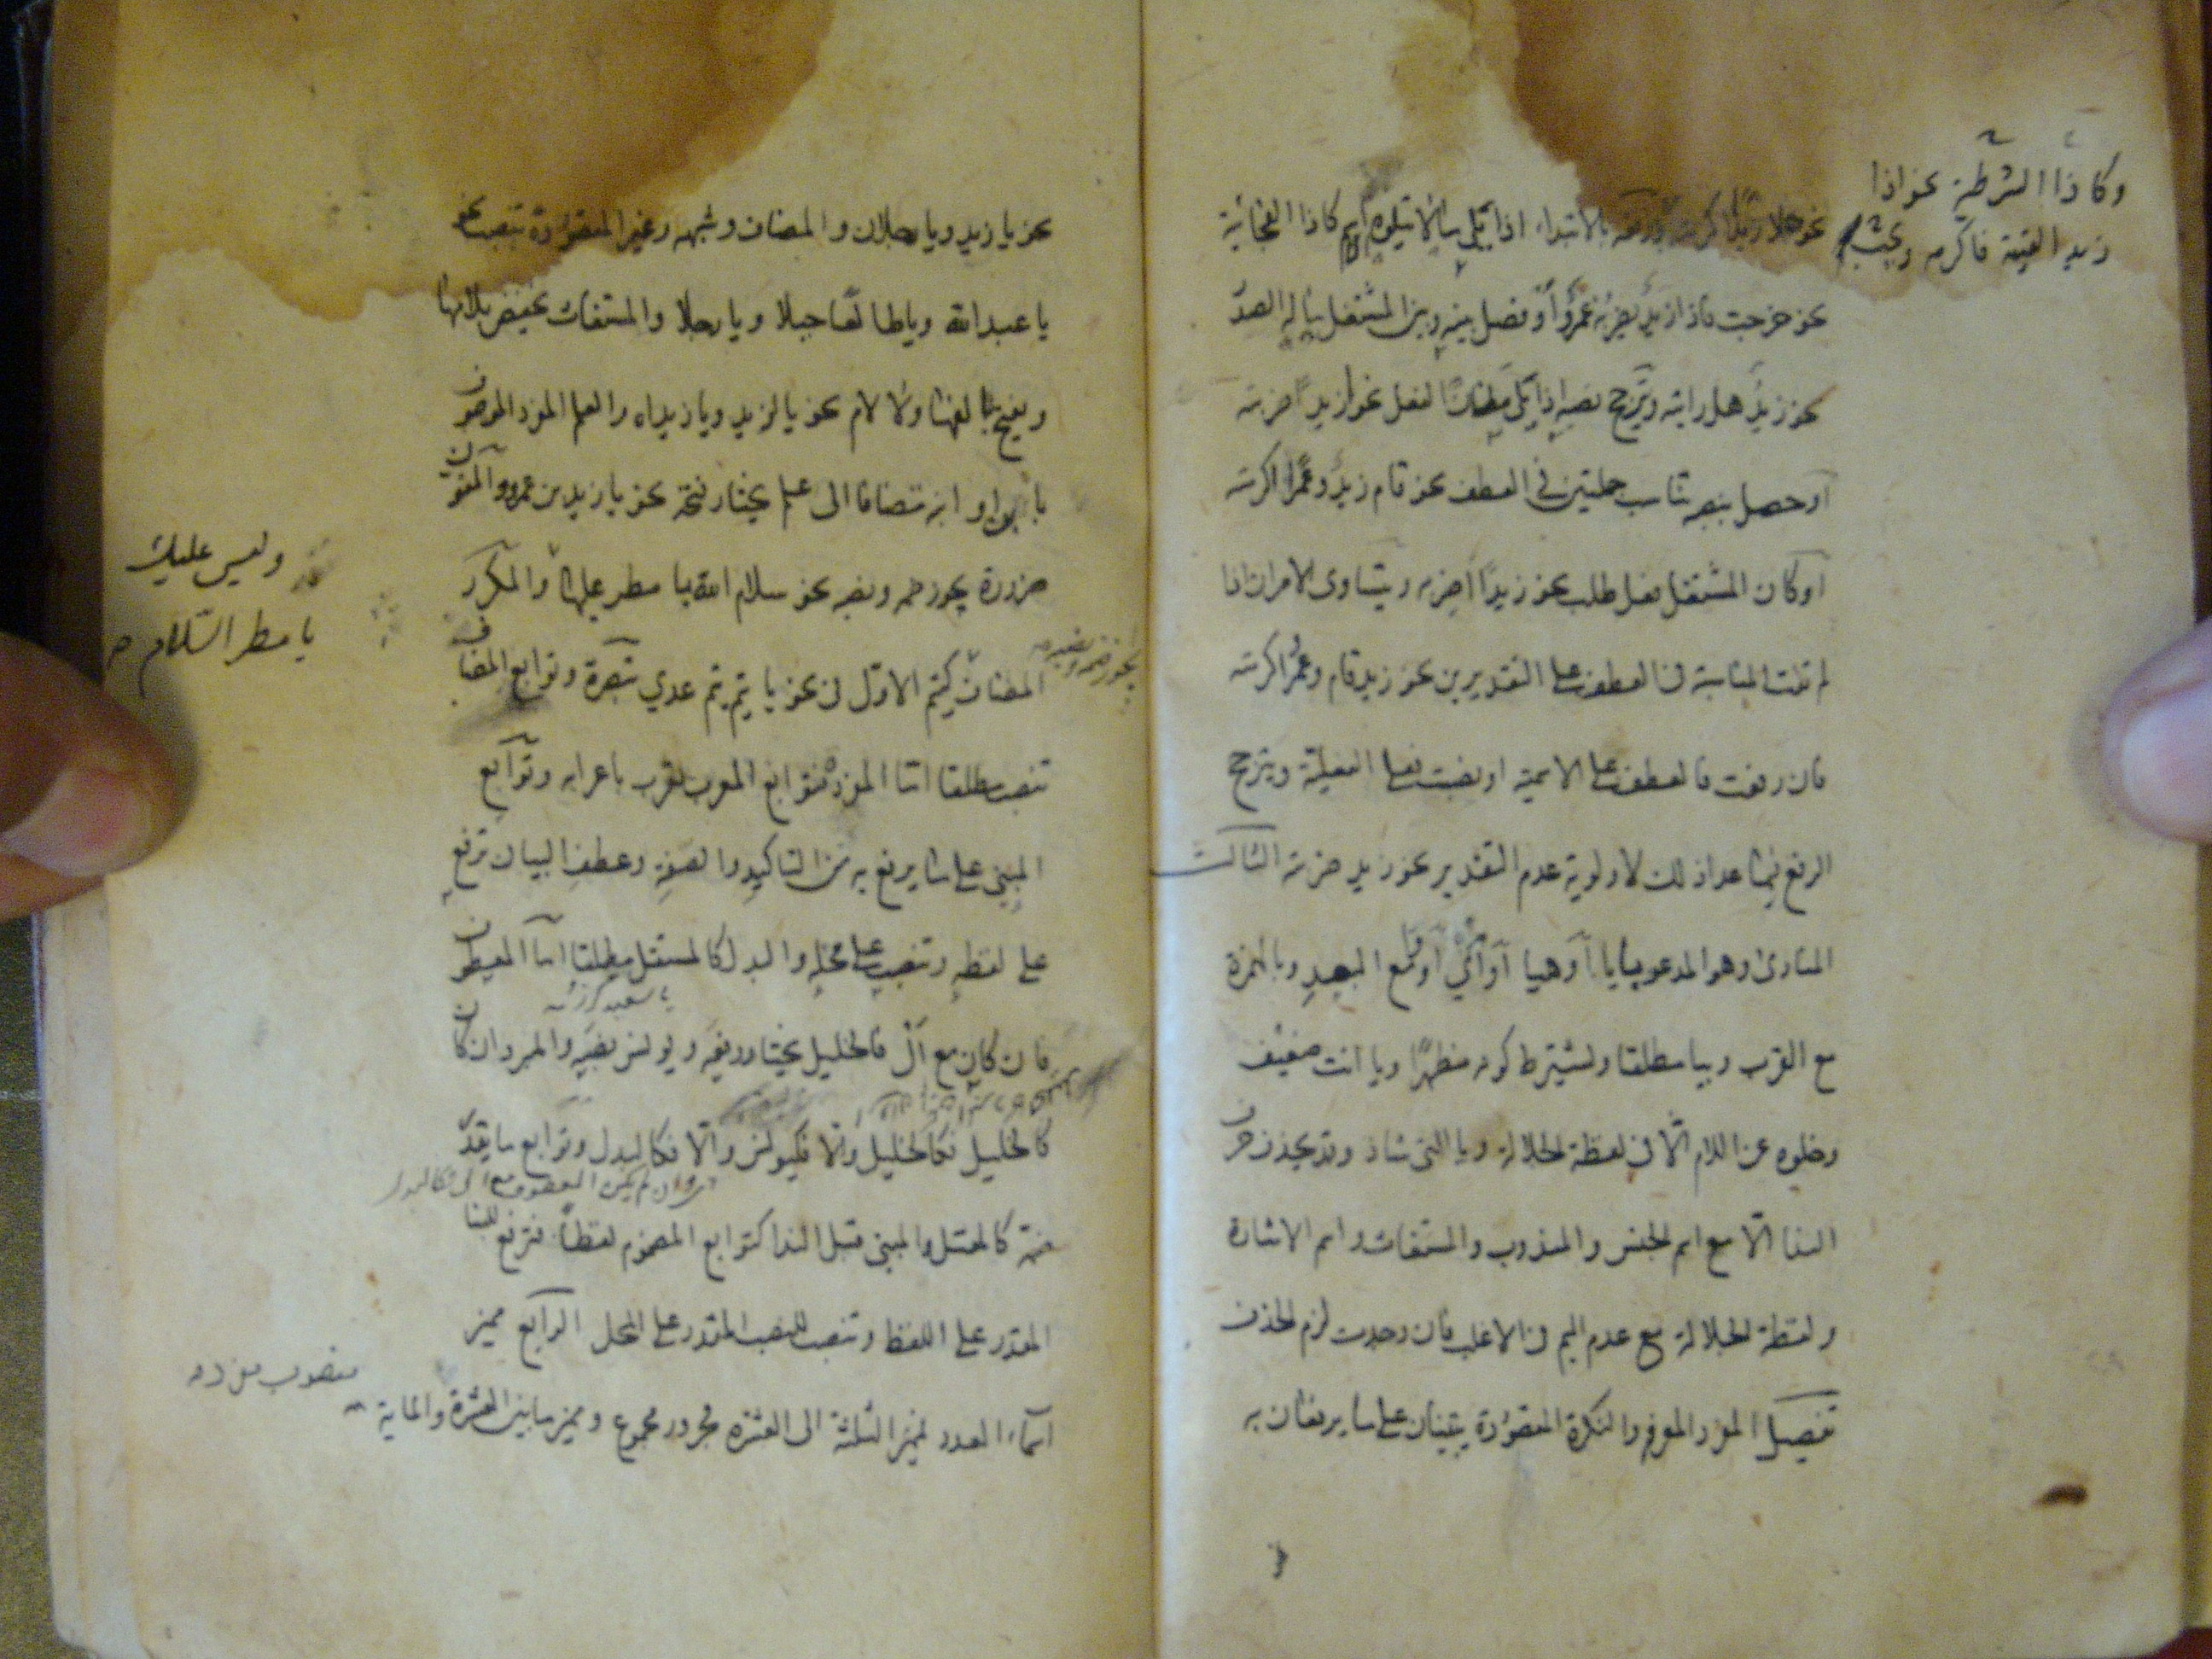 وكاذا الشرطية نحو اذا
زيد لقيته فاكرمه ويجب
نحو هلا زيدا اكرمته ورفعه بالابتداء اذا تلى ما لا يتلوه كاذا الفجائية
نحو خرجت فاذا زيد يضربه عمرو او فصل بينه وبين المشتغل ماله الصدر
نحو زيد هل رايته ويترجح نصبه اذا تلى مظان الفعل نحو ازيدا ضربته
او حصل بنصبه تناسب جملتين في العطف نحو قام زيد وعمرا اكرمته
او كان المشتغل فعل طلب نحو زيدا اضربه ويتساوى الامران اذا
لم تفت المناسبة في العطف على التقديرين نحو زيد قام وعمرا اكرمته
فان رفعت فالعطف على الاسمية او نصبت فعلى الفعلية ويترجح
الرفع فيما عدا ذلك لاولوية عدم التقدير نحو زيد ضربته الثالث
المنادى وهو المدعو بايا او هيا او اي او وا مع البعيد وبالهمزة
مع القرب وبيا مطلقا ويشترط كونه مظهرا ويا انت ضعيف
وخلوه عن اللام الا في لفظة الجلالة ويا التي شاذ وقد يحذف حرف
الندا الا مع اسم الجنس والمندوب والمستغاث واسم الاشارة
ولفظة الجلالة مع عدم الميم في الاغلب فان وجدت لزم الحذف
تفصيل المفرد المعرفة والنكرة المقصودة يبنيان على ما يرفعان به
نحو يا زيد ويا رجلان والمضاف وشبهه وغير المقصودة تنصب نحو
يا عبد الله ويا طالعا جبلا ويا رجلا والمستغاث يخفض بلامها
ويفتح بالفها ولا لام نحو يا لزيد ويا زيداه والعلم المفرد الموصوف
بابن او ابنة مضافا الى علم يختار فتحه نحو يا زيد بن عمرو والمنون
ضرورة يجوز ضمه ونصبه نحو سلام الله يا مطر عليها والمكرر
وليس عليك
يا مطر السلام
يجوز ضمه ونصبه
المضاف كتيم الاول في نحو يا تيم تيم عدي وتوابع المضاف
تنصب مطلقا اما المفرد فتوابع المعرب تعرب باعرابه وتوابع
المبني على ما يرفع به من التاكيد والصفة وعطف البيان ترفع
على لفظه وتنصب على محله والبدل كالمستقل مطلقا اما المعطوف
فان كان مع ال فالخليل يختار رفعه ويونس نصبه والمبرد ان كان
كالخليل فكالخليل والا فكيونس والا فكالبدل وتوابع ما يقدر
ضمه كالمعتل والمبني قبل الندا كتوابع المضموم لفظا فترفع للبنا
المقدر على اللفظ وتنصب للنصب المقدر على المحل الرابع مميز
اسماء العدد فمميز الثلثة الى العشرة مجرور مجموع ومميز ما بين العشرة والماية
منصوب مفرد